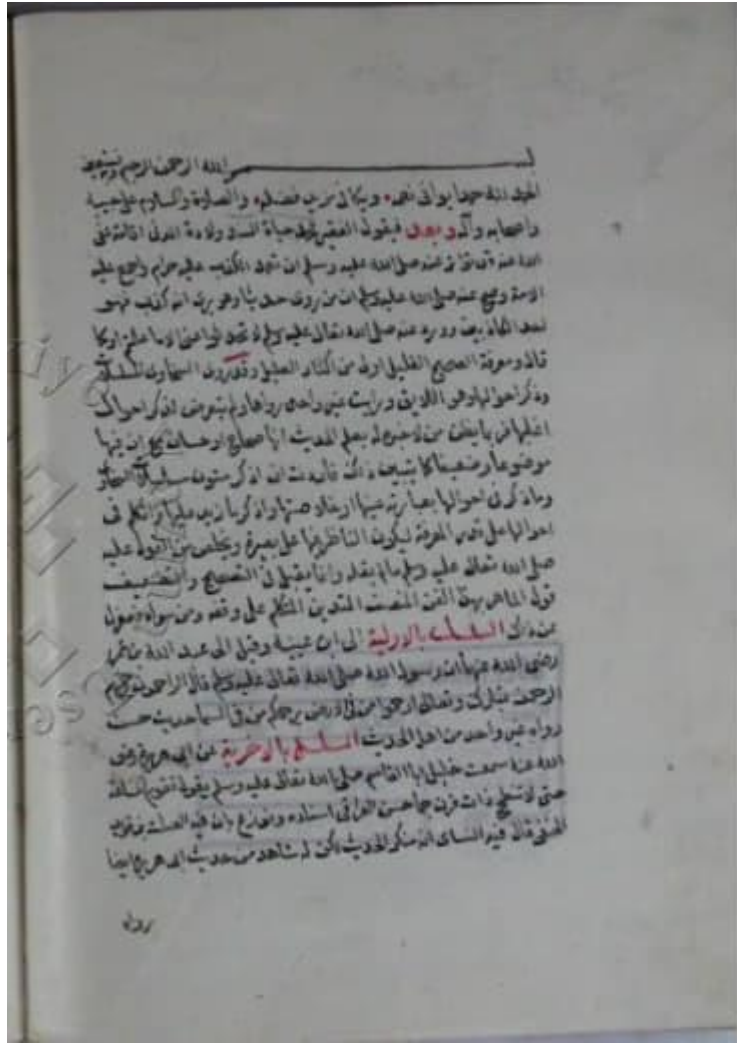 بسم الله الرحمن الرحيم وبه نستعين
الحمد لله حمدا يوافي نعمه ويكافي مزيد فضله والصلاة والسلام على حبيبه
واصحابه وآله وبعد فيقول الفقير محمد حياة السندي ولادة المدني اقامة عفى
الله عنه قد تواتر عنه صلى الله عليه وسلم ان تعمد الكذب عليه حرام واجمع عليه
الامة وصح عنه صلى الله عليه وسلم ان من روى حديثا وهو يرى انه كذب فهو
احد الكاذبين وورد عنه صلى الله تعالى عليه وسلم لا تحدثوا عني الا ما علمتم او كما
قال ومعرفة الصحيح القليل اولى من اكثار العليل وقد روى السخاوي المسلسلات
وذكر احوالها وهو اللايق ورايت غير واحد رواها ولم يتعرض لذكر احوال
اغلبها فربما يظن من لا خبرة له بعلم الحديث انها صحاح او حسان مع ان فيها
موضوعا وضعيفا كما ستبينه ذلك فاردت ان اذكر متون مسلسلات السخاوي
وما ذكره في احوالها بعبارته عينها او خلاصتها واذكر ما زيد عليها واتكلم في
احوالها على قدر المعرفة ليكون الناظر فيها على بصيرة ويخلص من التقول عليه
صلى الله تعالى عليه وسلم ما لم يقله وانما يقبل في التصحيح والتضعيف
قول الماهر بهذا الفن المنصف المتدين المتكلم على وفقه ومن سواه
عن ذلك المسلسل بالاولية الى ابن عيينة وقيل الى عبد الله بن عمرو
رضي الله عنهما ان رسول الله صلى الله تعالى عليه وسلم قال الراحمون يرحمهم
الرحمن تبارك وتعالى ارحموا من في الارض يرحمكم من في السما حديث حسن
رواه غير واحد من اهل الحديث المسلسل بالاخرية عن ابي هريرة رضي
الله عنه سمعت خليلي ابا القاسم صلى الله تعالى عليه وسلم يقول لا تقوم الساعة
حتى لا تنطح ذات قرن جما حسن العراقي اسناده ونوزع بان فيه الصلت بن قويد
الحنفي قال فيه النساي انه منكر الحديث لكن له شاهد من حديث ابي هريرة ايضا
رواه